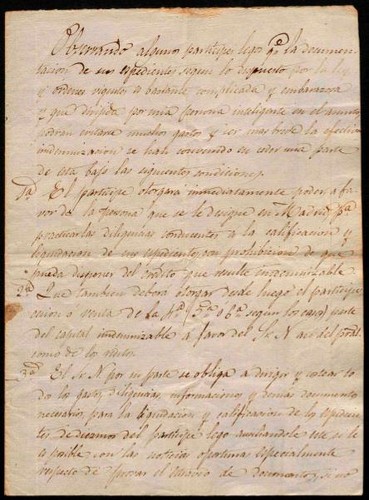 Observando algunos participes legos qe la documen-
tacion de sus espedientes segun lo dispuesto por la ley
y ordenes vigentes es bastante complicada y embarazosa
y que dirijida por una persona inteligente en el asunto
podran evitarse muchos gastos y ser mas breve la efectiva
indemnizacion se han convenido en ceder una parte
de esta bajo las siguientes condiciones
1ª El participe otorgará inmediatamente poder a fa-
vor de la persona que se le designe en Madrid pa
practicar las diligencias conducentes a la calificacion y
liquidacion de sus espedientes con prohibicion de que
pueda disponer del credito que resulte indemnizable
2ª Que tambien deberá otorgar desde luego el participe
cesion o venta de la 4ª 5ª o 6ª segun los casos parte
del capital indemnizable a favor del Sr N asi del pral
como de los reditos
3ª El Sr N por su parte se obliga a dirigir y costear to
dos los gastos, diligencias, informaciones y demas documentos
necesarios para la liquidacion y calificacion de los espedien
tes de diezmos del participe lego auxiliandole este si le
es posible con las noticias oportunas especialmente
respecto de parar el de documentos, si no